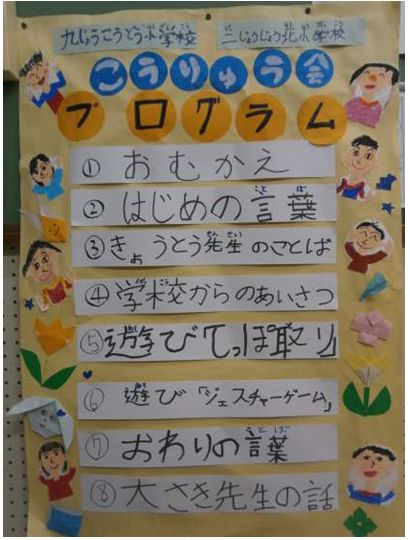 九じょうこうどう小学校
二じょうじょう北小学校
こうりゅう会
プログラム
① おむかえ
② はじめの言葉
③ きょうとう先生のことば
④ 学校からのあいさつ
⑤ 遊び「しっぽ取り」
⑥ 遊び「ジェスチャーゲーム」
⑦ おわりの言葉
⑧ 大さき先生の話